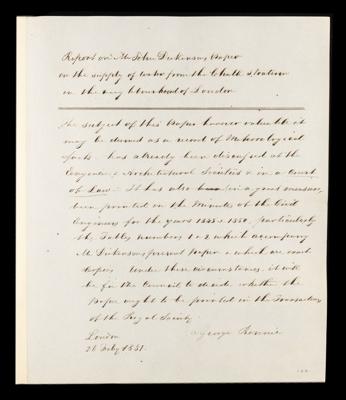 Report on Mr John Dickinsons Paper
on the supply of water from the Chalk Stratum
in the neighbourhood of London
The subject of this Paper however valuable it
may be deemed as a record of Meteorological
facts has already been discussed at the
Engineers & Architectural Societies & in a Court
of Law. It has also in a good measure
been printed in the Minutes of the Civil
Engineers for the years 1843 & 1850, particularly
the Tables numbers 1 & 2 which accompany
Mr Dickinsons present paper & which are exact
copies. Under these circumstances, it will
be for the Council to decide whether the
Paper ought to be printed in the Transactions
of the Royal Society.
George Rennie
London
26 Feby 1851.